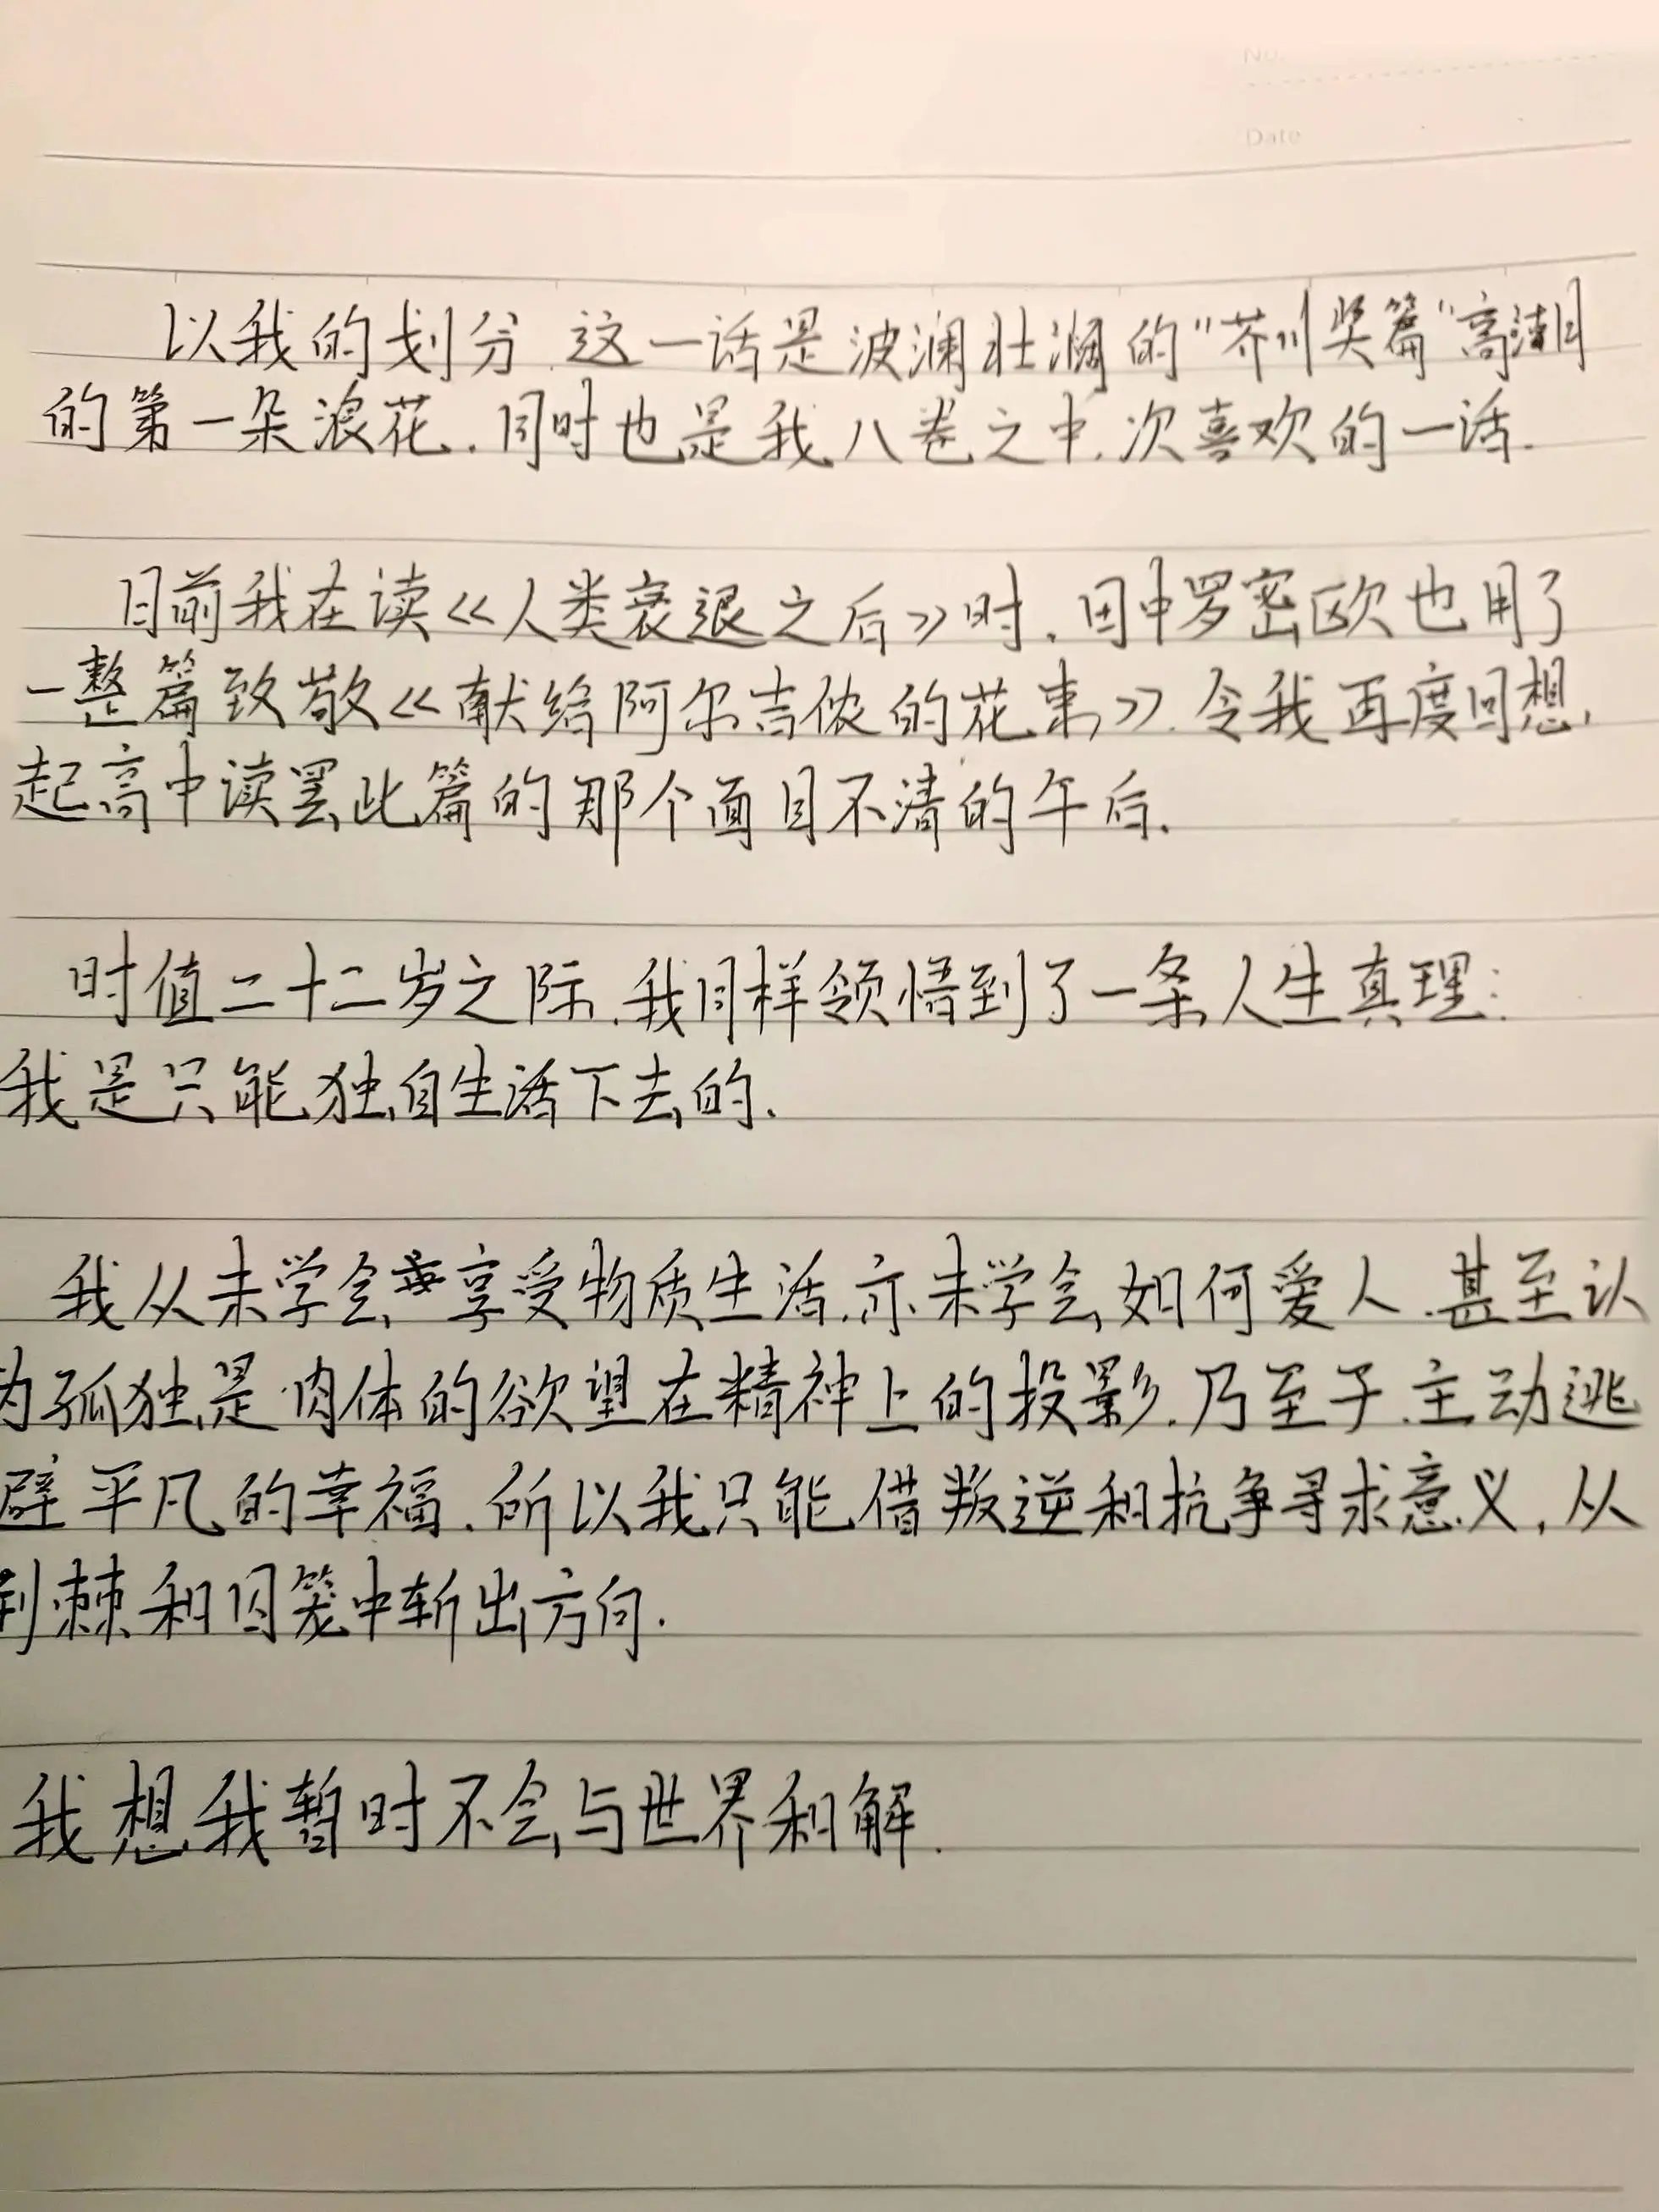 No.
Date
以我的划分.这一话是波澜壮阔的"芥川奖篇"高潮
的第一朵浪花.同时也是我八卷之中.次喜欢的一话.
目前我在读《人类衰退之后》时.田中罗密欧也用了
一整篇致敬《献给阿尔吉侬的花束》.令我再度回想
起高中读罢此篇的那个面目不清的午后.
时值二十二岁之际.我同样领悟到了一条人生真理:
我是只能独自生活下去的.
我从未学会享受物质生活.亦未学会如何爱人.甚至认
为孤独是肉体的欲望在精神上的投影.乃至于主动逃
避平凡的幸福.所以我只能借叛逆和抗争寻求意义,从
荆棘和囚笼中斩出方向.
我想我暂时不会与世界和解.